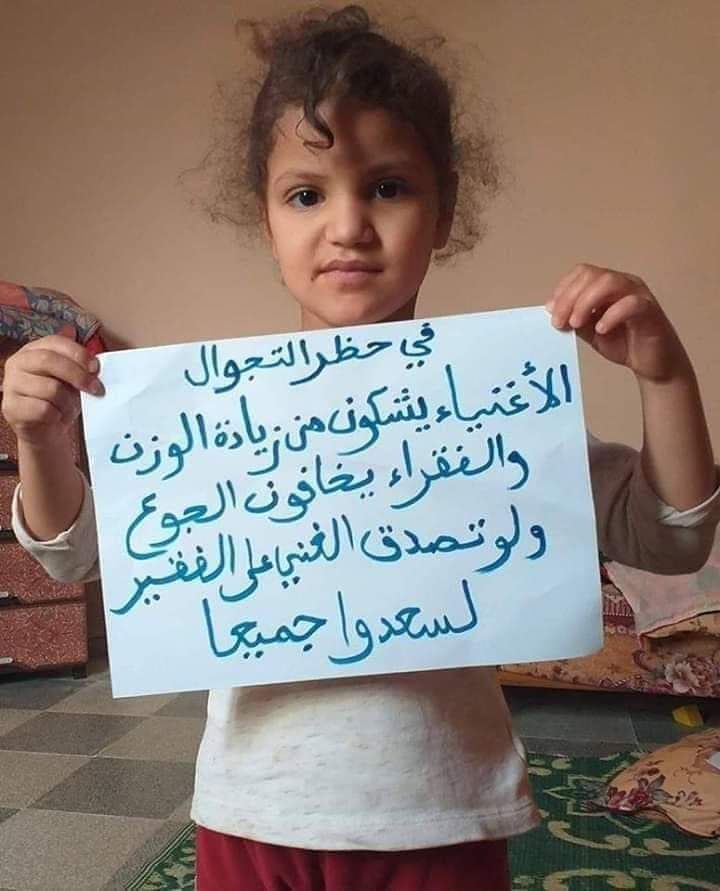 في حظر التجوال
الأغنياء يشكون من زيادة الوزن
والفقراء يخافون الجوع
ولو تصدق الغني على الفقير
لسعدوا جميعا